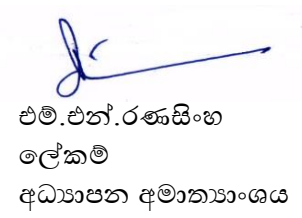 එම්.එන්.රණසිංහ
ලේකම්
අධ්‍යාපන අමාත්‍යාංශය